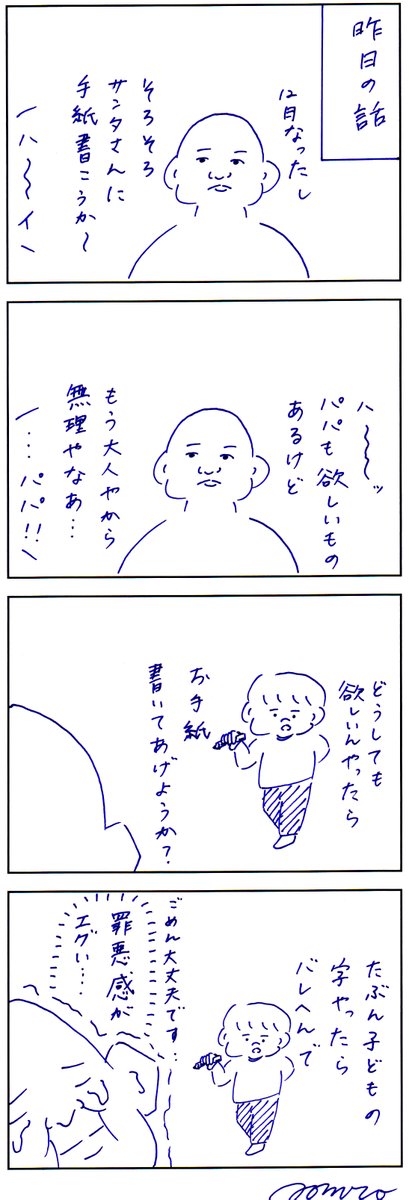 昨日の話
12月なったし
そろそろ
サンタさんに
手紙書こうか〜
ハ〜〜イ
ハ〜〜〜ッ
パパも欲しいもの
あるけど
もう大人やから
無理やなあ…
…パパ!!
どうしても
欲しいんやったら
お手紙
書いてあげようか?
たぶん子どもの
字やったら
バレへんで
ごめん大丈夫です…
罪悪感が
エグい…